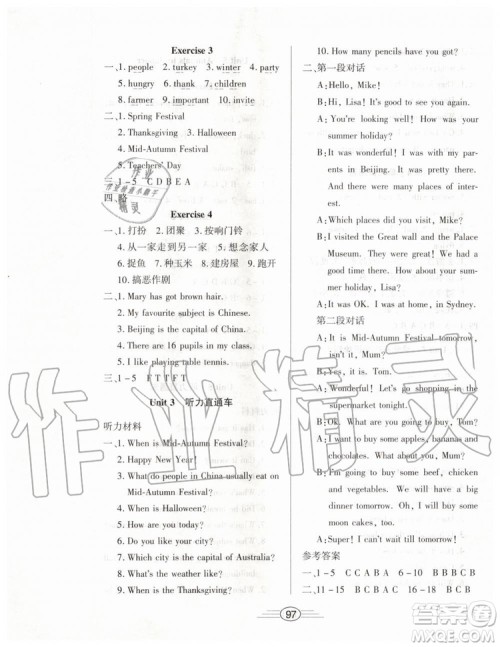 Exercise 3
一、1. people  2. turkey  3. winter  4. party
5. hungry  6. thank  7. children
8. farmer  9. important  10. invite
二、1. Spring Festival
2. Thanksgiving  3. Halloween
4. Mid-Autumn Festival
5. Teachers' Day
三、1-5  CDBEA
四、略
Exercise 4
一、1. 打扮  2. 团聚  3. 按响门铃
4. 从一家走到另一家  5. 想念家人
6. 捉鱼  7. 种玉米  8. 建房屋  9. 跑开
10. 搞恶作剧
二、1. Mary has got brown hair.
2. My favourite subject is Chinese.
3. Beijing is the capital of China.
4. There are 16 pupils in my class.
5. I like playing table tennis.
三、1-5  FTTFT
Unit 3  听力直通车
听力材料
一、1. When is Mid-Autumn Festival?
2. Happy New Year!
3. What do people in China usually eat on
Mid-Autumn Festival?
4. When is Halloween?
5. How are you today?
6. Do you like your city?
7. Which city is the capital of Australia?
8. What's the weather like?
9. When is the Thanksgiving?
10. How many pencils have you got?
二、第一段对话
A: Hello, Mike!
B: Hi, Lisa! It's good to see you again.
A: You're looking good! How was your
summer holiday?
B: It was wonderful! I was with my par-
ents in Beijing. Many places of inter-
est.
A: Which places did you visit, Mike?
B: I visited the Great wall and the Palace
Museum. They're great! How was your
summer holiday, Lisa?
A: It was OK. I was at home, in Sydney.
第二段对话
A: It is Mid-Autumn Festival tomorrow,
isn't it, Mum?
B: Yes, it is.
A: Wonderful! Let's go shopping in the
supermarket tonight.
B: OK. What are you going to buy, Tom?
A: I want to buy some apples, bananas and
chocolates. What about you, Mum?
B: I'm going to buy some beef, chicken
and vegetables. We will have a big
dinner tomorrow. I will also buy some
moon cakes, too.
A: Super! I will start to buy tomorrow!
参考答案
一、1-5  CCABA  6-10  BBBCB
二、11-15  BACBC  16-18  BCB
97
作业精灵
答案圈